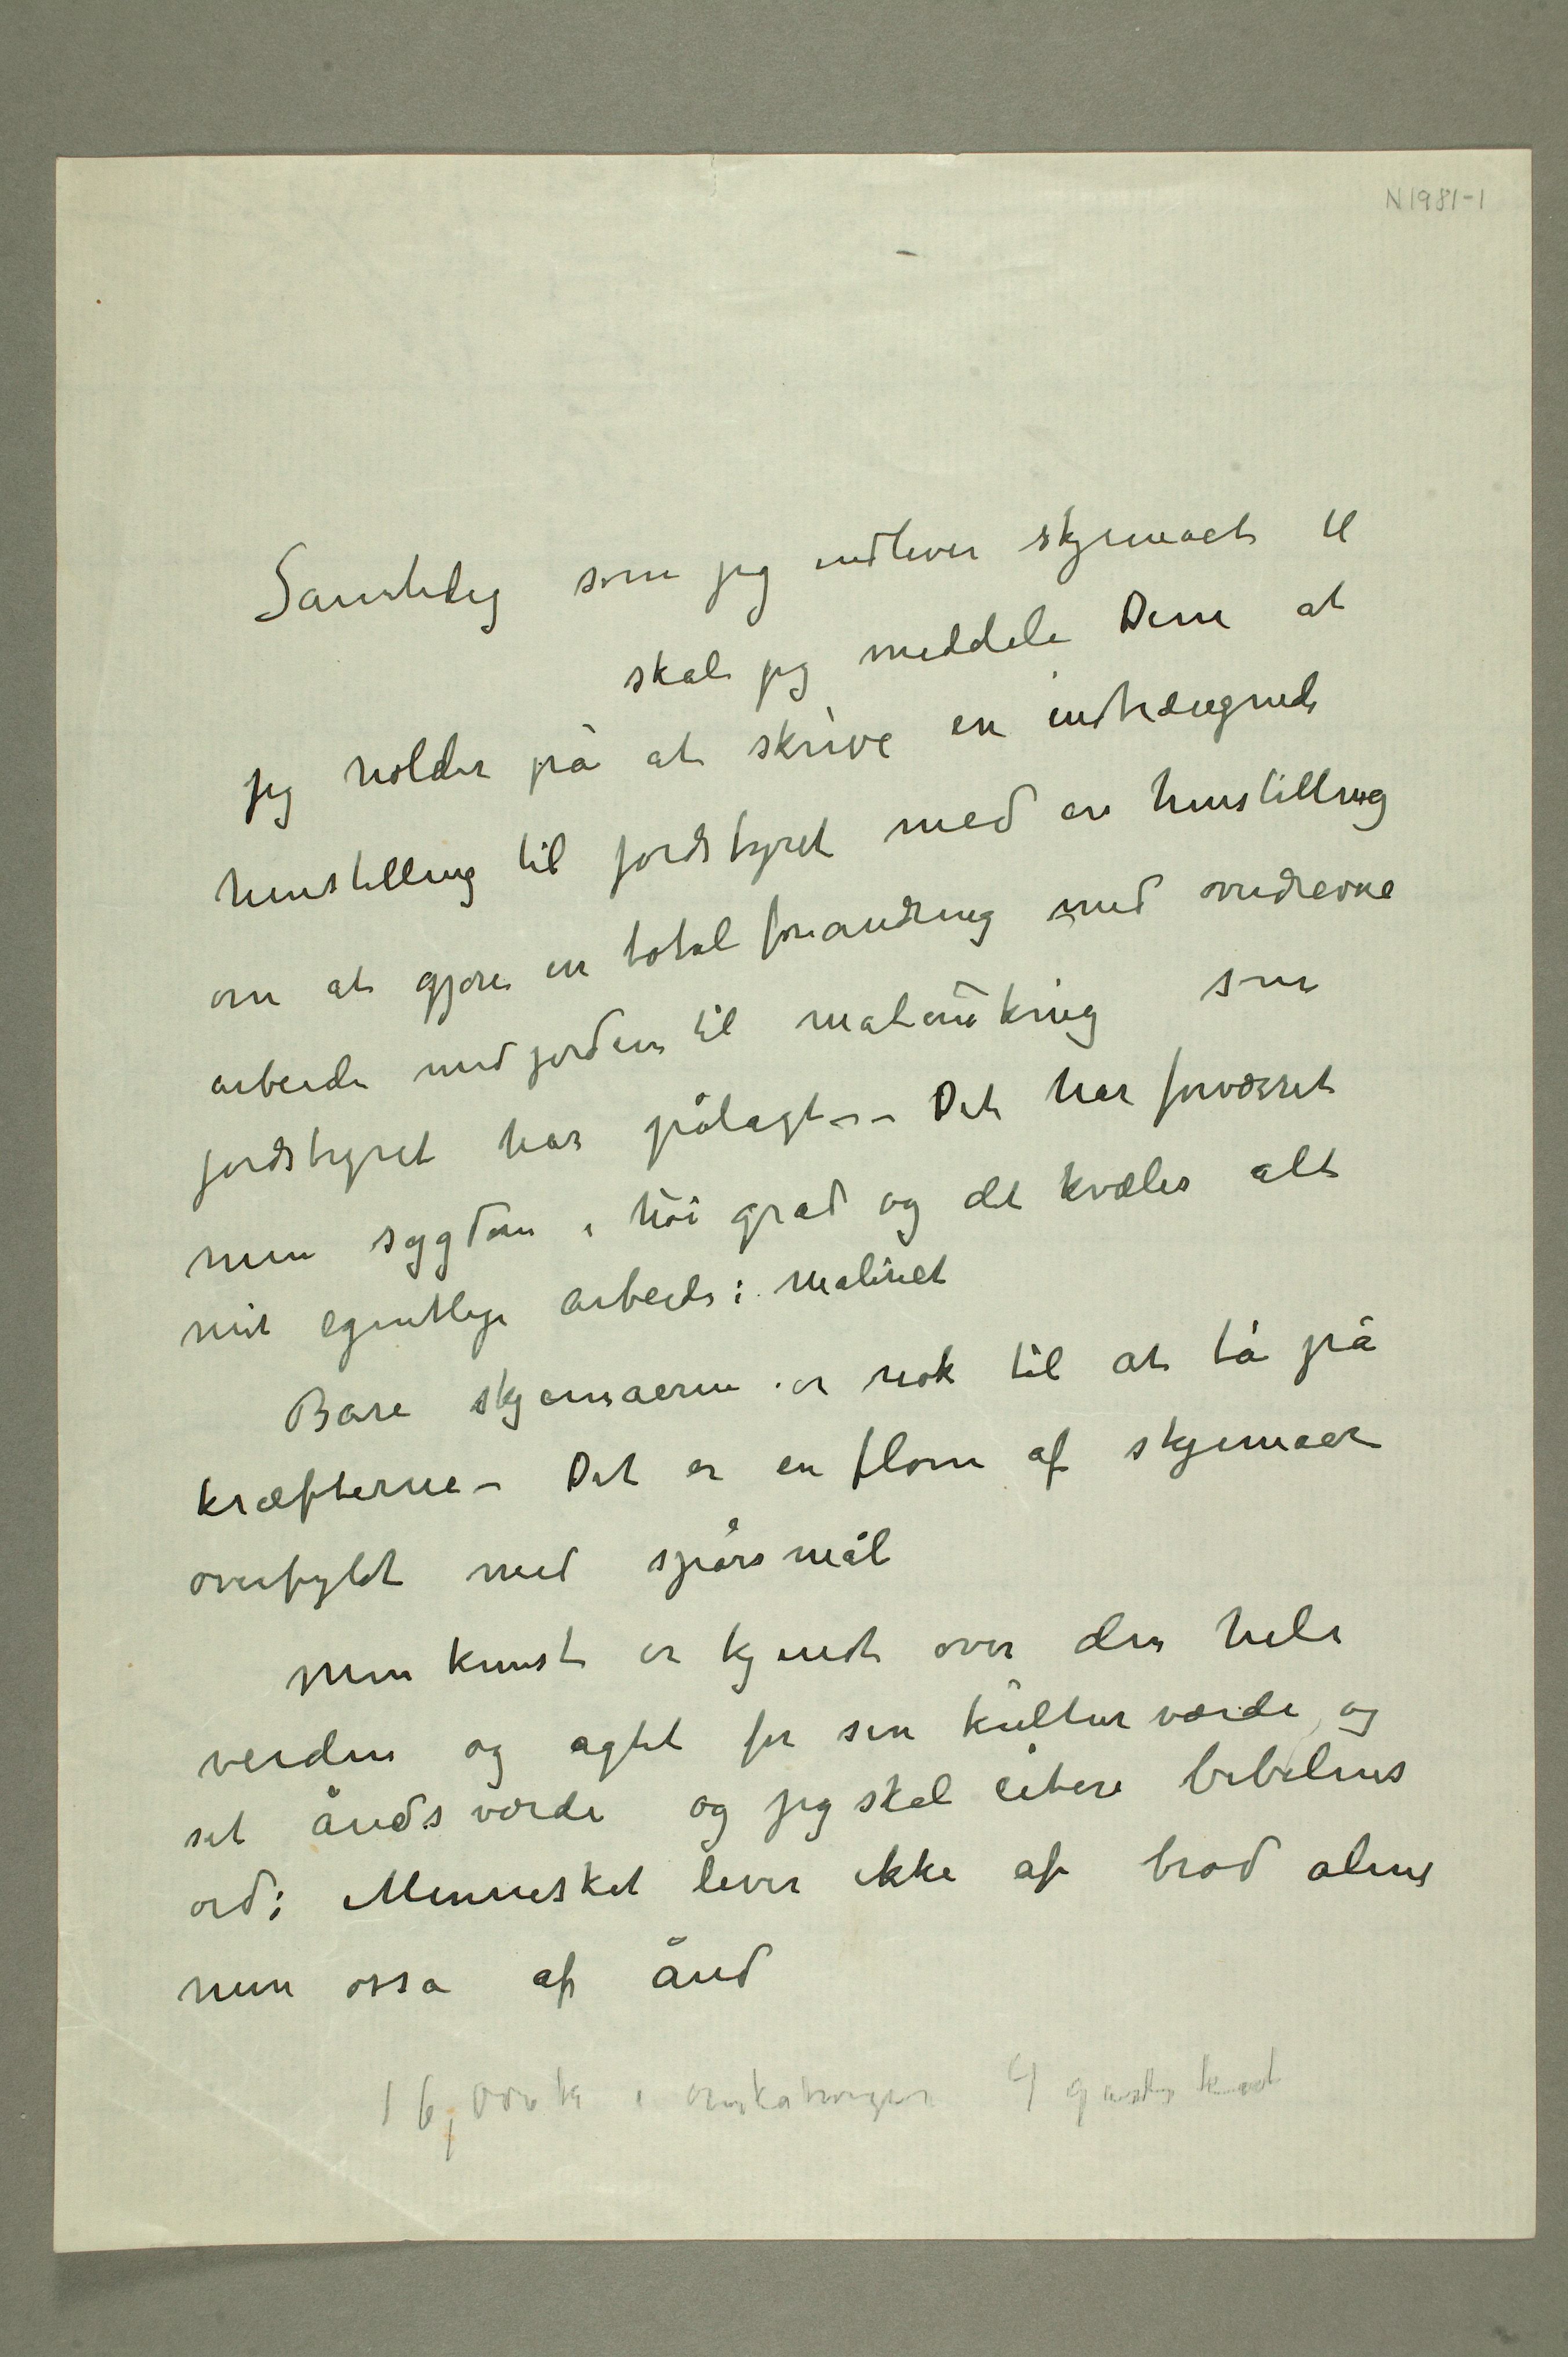 N 1981-1
Samtidig som jeg indlever skjemaet til
skal jeg meddele Dem at
jeg holder på at skrive en indtrængende
henstilling til jordstyret med en henstilling
om at gjøre en total forandring med overdrevne
arbeide med jorden til matauking som
jordstyret har pålagt – Det har forværret
min sygdom i høi grad og det kvæles alt
mit egentlige arbeide: maleriet
Bare skjemaerne er nok til at ta på
kræfterne – Det er en flom af skjemaer
overfyldt med spørsmål
Min kunst er kjendt over den hele
verden og agtet for sin kulturværdi og
sit åndsværdi og jeg skal citere bibelens
ord: Mennesket lever ikke af brød alene
men osså af ånd
16,000 kr i